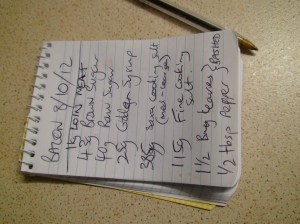 BACON 8/10/12
1KG LOIN MEAT
43g Brown Sugar
40g Raw Sugar
25g Golden Syrup
385g Sea Cooking Salt
(med-coarse)
115g Fine Cooking
Salt.
1 1/2 Bay leaves } BASHED
1/2 tbsp Pepper